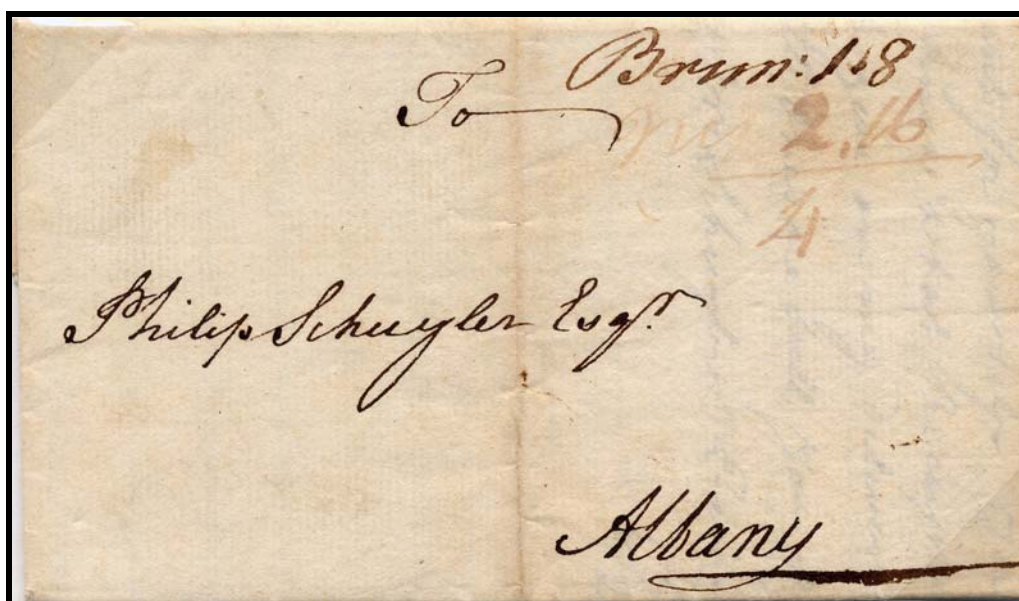 Brun: 1.8
To
2.16
4
Philip Schuyler Esqr.
Albany